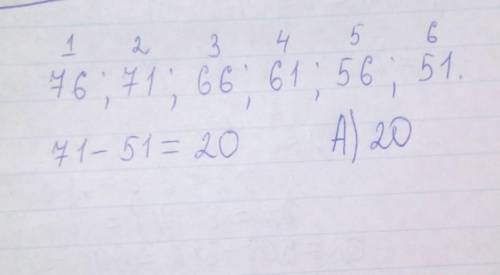 1 2 3 4 5 6
76; 71; 66; 61; 56; 51.
71 - 51 = 20 A) 20